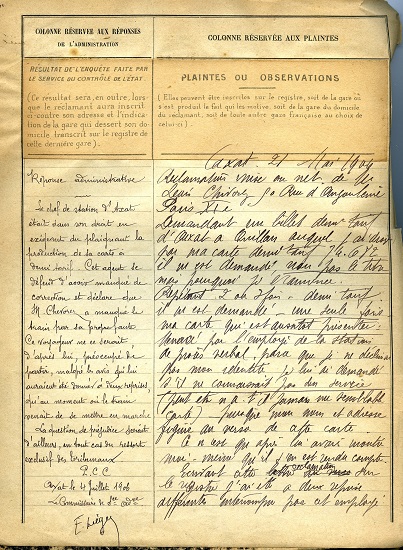 COLONNE RÉSERVÉE AUX RÉPONSES
DE L'ADMINISTRATION
RÉSULTAT DE L'ENQUÊTE FAITE PAR
LE SERVICE DU CONTRÔLE DE L'ÉTAT.
(Ce résultat sera, en outre, lorsque
le réclamant aura inscrit
ci-contre son adresse et l'indication
de la gare qui dessert son domicile
transcrit sur le registre de
cette dernière gare.)
Réponse administrative
Le chef de station d'Axat
était dans son droit en
exigeant du plaignant la
production de la carte à
demi-tarif. Cet agent se
défend d'avoir manqué de
correction et déclare que
M. Chevrer a manqué le
train par sa propre faute
Ce voyageur ne se serait,
d'après lui, préoccupé de
partir, malgré les avis qui lui
auraient été donnés à deux reprises
qu'au moment où le train
venait de se mettre en marche
La question de préjudice serait
d'ailleurs, en tout cas du ressort
exclusif des tribunaux
P.C.C
Axat le 4 Juillet 1904
Le Commissaire de
COLONNE RÉSERVÉE AUX PLAINTES
PLAINTES OU OBSERVATIONS
(Elles peuvent être inscrites sur le registre, soit de la gare où
s'est produit le fait qui les motive, soit de la gare du domicile
du réclamant, soit de toute autre gare française au choix de
celui-ci.)
Axat 21 Mai 1904
Réclamation mise au net de M.
Louis 90 Rue d'Angoulême
Paris XIe
Demandant un billet demi tarif
d'Axat à Quillan auquel j'ai droit
par ma carte demi tarif
il m'est demandé non pas le titre
mais pourquoi je l'
Répétant 2 ou 3 fois "demi tarif"
il m'est demandé une seule fois
ma carte qui est aussitôt présentée
Menacé par l'employé de la station
de procès verbal, parce que je ne déclinais
pas mon identité je lui ai demandé
s'il ne connaissait pas son service
(peut-être n'a-t-il jamais vu semblable
carte) puisque mon nom et adresse
figure au verso de cette carte
Ce n'est qu'après lui avoir montré
moi-même qu'il s'en est rendu compte
Écrivant cette réclamation sur
le registre j'ai été à deux reprises
différentes interrompu par cet employé